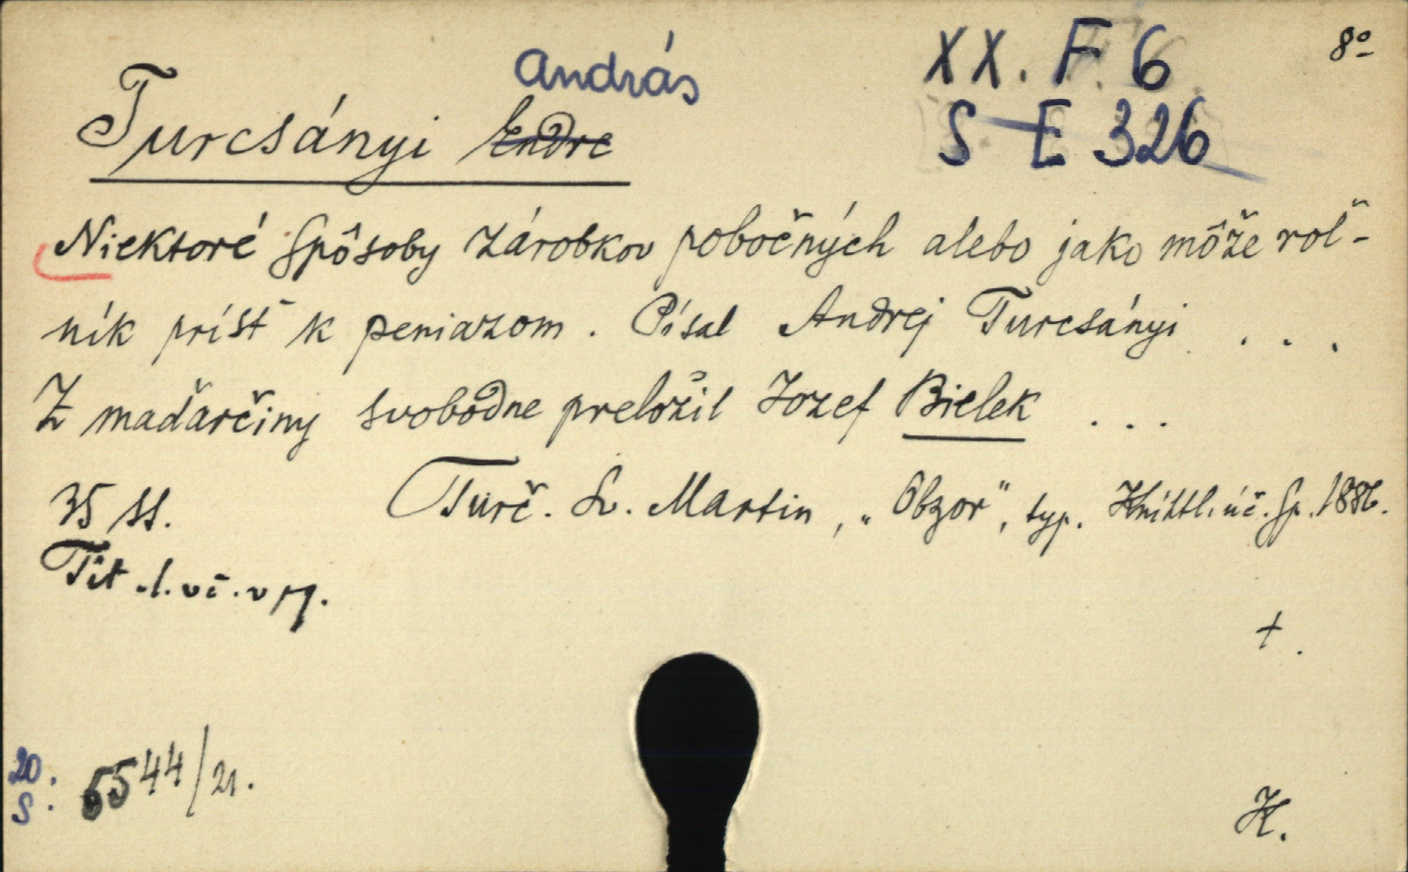 András
XX. F 6
8°
Turcsányi Endre
S E 326
Niektoré spôsoby zárobkov pobočných alebo jako môže roľ-
ník prísť k peniazom. Písal Andrej Turcsányi ...
Z maďarčiny svobodne preložil Jozef Bielek ...
35 ss. Turč. Sv. Martin, „Obzor", typ. Knihtl. úč. sp. 1886.
Tit. l. vč. v p.
+.
20.
S.
5544/21.
H.